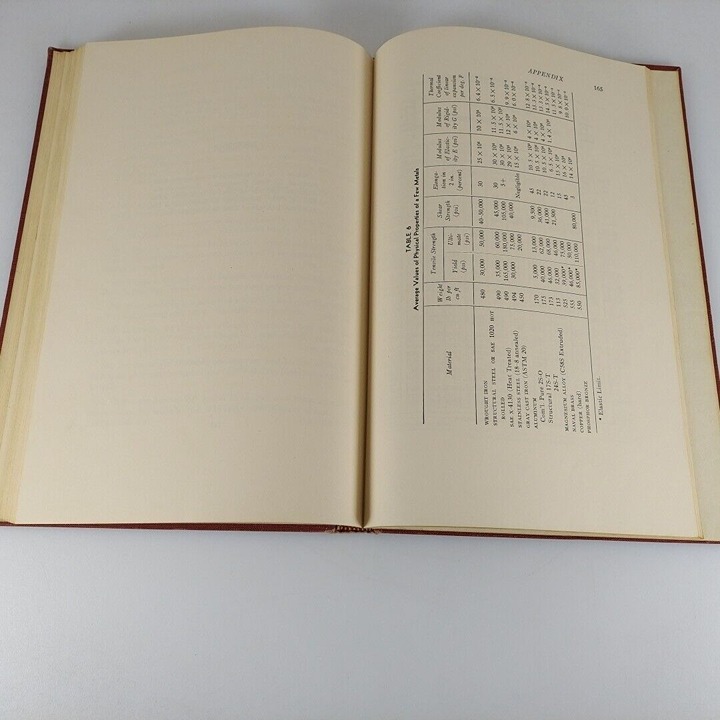 APPENDIX
165
TABLE 6
Average Values of Physical Properties of a Few Metals
Material | Weight lb per cu ft | Tensile Strength Yield (psi) | Tensile Strength Ultimate (psi) | Shear Strength (psi) | Elongation in 2 in. (percent) | Modulus of Elasticity E (psi) | Modulus of Rigidity G (psi) | Thermal Coefficient of linear expansion per deg. F
WROUGHT IRON 480 30,000 50,000 40-50,000 30 25 × 10⁶ 10 × 10⁶ 6.4 × 10⁻⁶
STRUCTURAL STEEL OR SAE 1020 HOT
ROLLED 490 35,000 60,000 45,000 30 30 × 10⁶ 11.5 × 10⁶ 6.5 × 10⁻⁶
SAE X-4130 (Heat Treated) 490 165,000 180,000 105,000 5+ 30 × 10⁶ 11.5 × 10⁶
STAINLESS STEEL (18-8 annealed) 494 30,000 75,000 40,000 29 × 10⁶ 12 × 10⁶
GRAY CAST IRON (ASTM 20) 450 20,000 Negligible 15 × 10⁶ 6 × 10⁶
ALUMINUM
Com'l. Pure 2S-O 170 5,000 13,000 9,500 45 10.3 × 10⁶ 4 × 10⁶
Structural 17S-T 175 40,000 62,000 36,000 22 10.3 × 10⁶ 4 × 10⁶
24S-T 173 46,000 68,000 41,000 22 10.3 × 10⁶ 4 × 10⁶
MAGNESIUM ALLOY (C58S Extruded) 113 32,000 46,000 12 6.5 × 10⁶
NAVAL BRASS 525 15
COPPER (hard) 555 50,000
PHOSPHOR BRONZE 550 110,000 80,000 3
* Elastic Limit